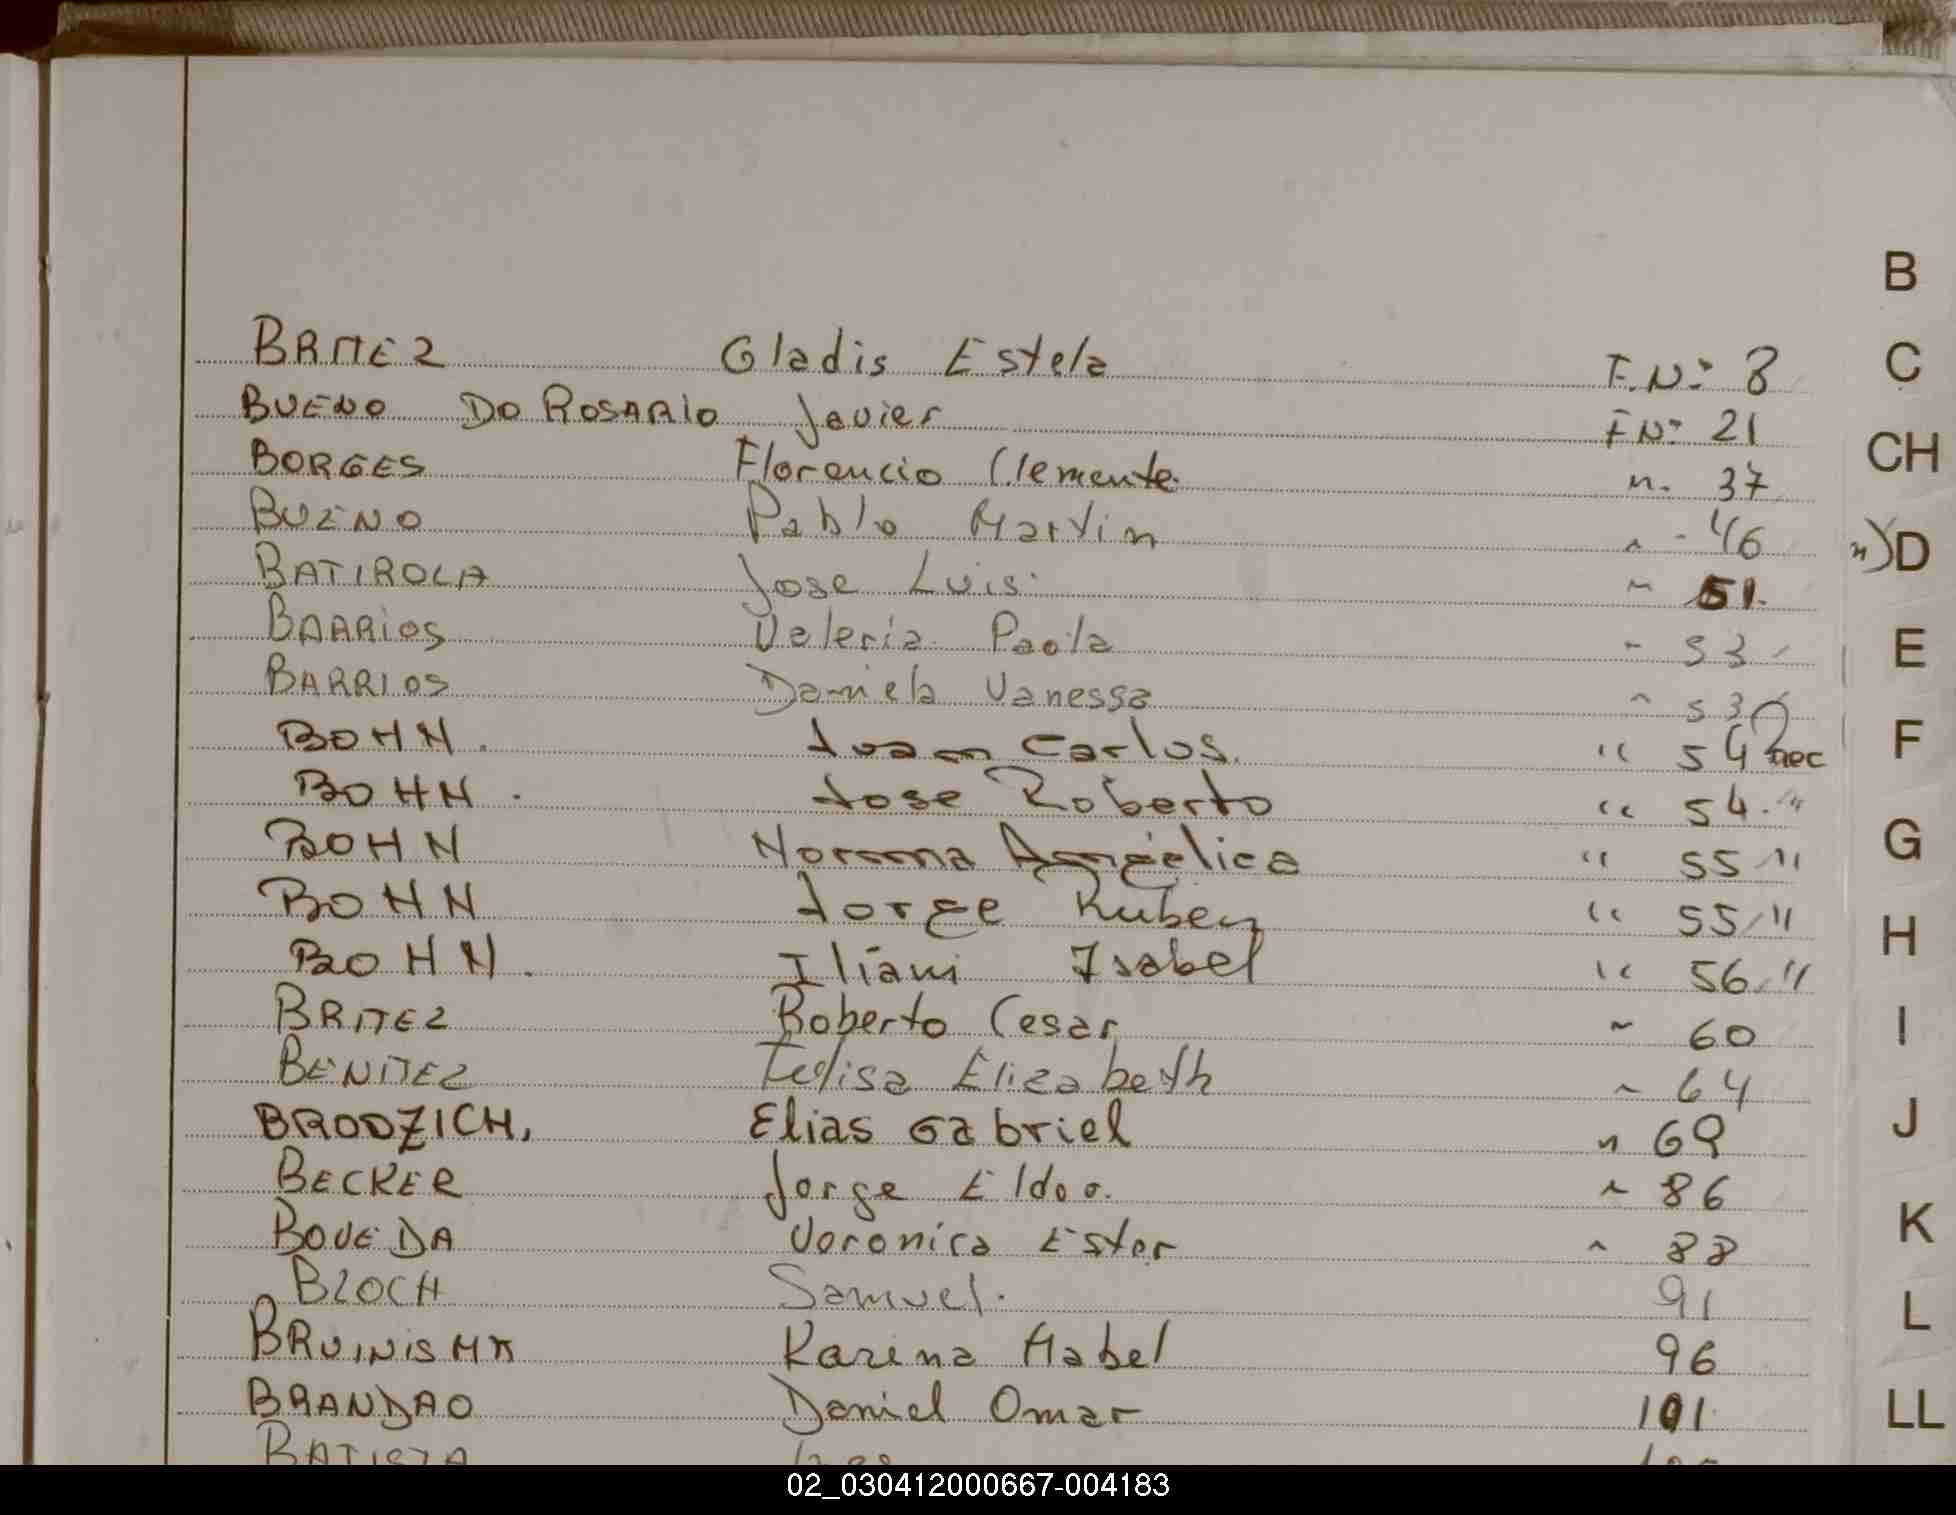 B
BRITEZ Gladis Estela F.Nº 8
C
BUENO DO ROSARIO Javier FNº 21
CH
BORGES Florencio Clemente. n. 37
BUENO Pablo Martin " - 46
D
BATIROLA Jose Luis. " 51.
BAARRIOS Valeria Paola " 53
E
BARRIOS Daniela Vanessa " 53
BOHN. Juan Carlos. " 54 Rec
F
BOHN. Jose Roberto " 54 . "
BOHN Norma Angélica " 55 "
G
BOHN Jorge Ruben " 55 "
H
BOHN. Iliani Isabel " 56 "
BRITEZ Roberto Cesar " 60
I
BENITEZ Elizabeth " 64
BRODZICH, Elias Gabriel " 69
J
BECKER Jorge Eldo " 86
BOVEDA Veronica Ester " 88
K
BLOCH Samuel. 91
L
Karina Mabel 96
BRANDAO Daniel Omar 101
LL
BATISTA
02_030412000667-004183